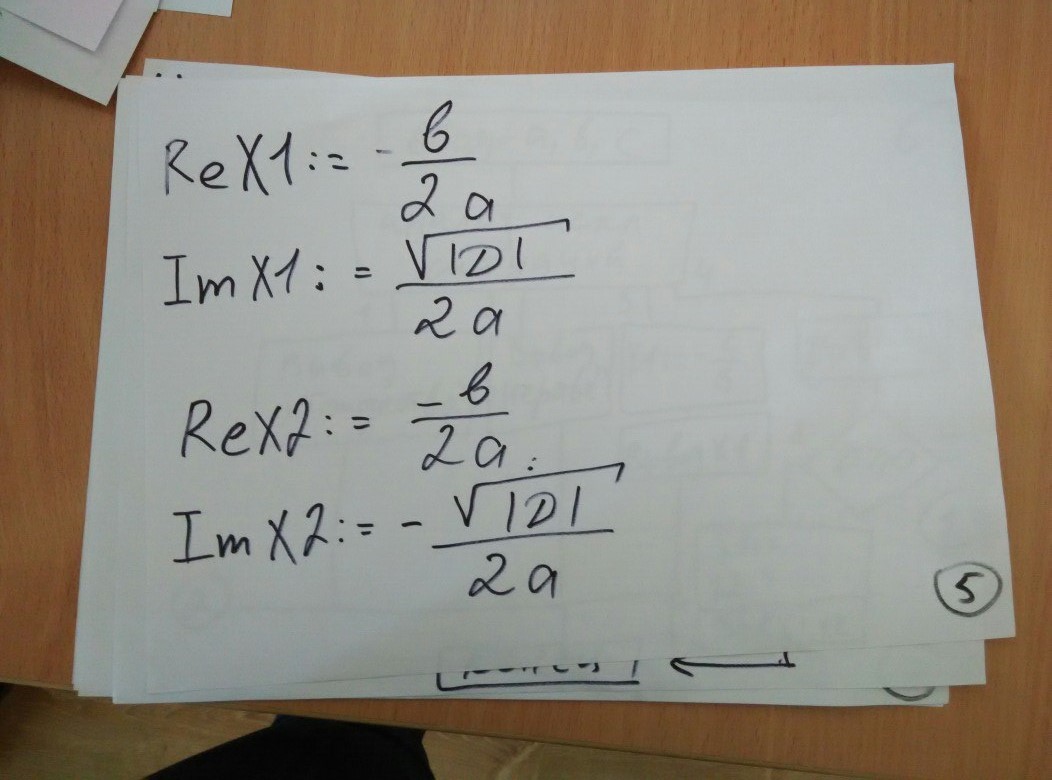 ReX1:= - b / 2a
ImX1:= √|D| / 2a
ReX2:= -b / 2a
ImX2:= - √|D| / 2a
5